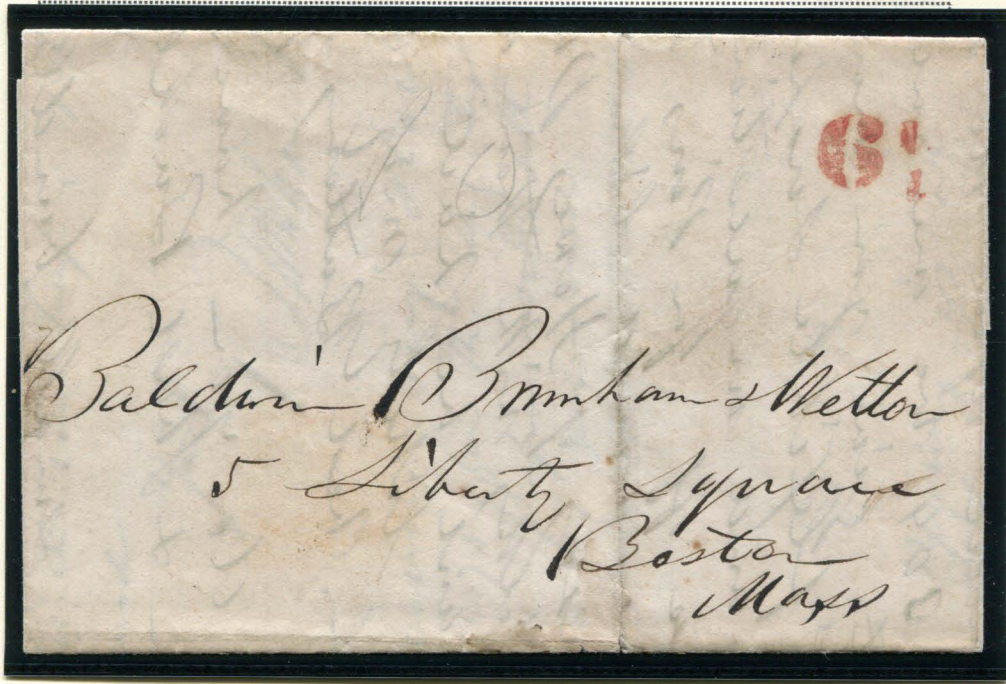 6 1
1
Baldwin Burnham & Wetton
5 Liberty Square
Boston
Mass